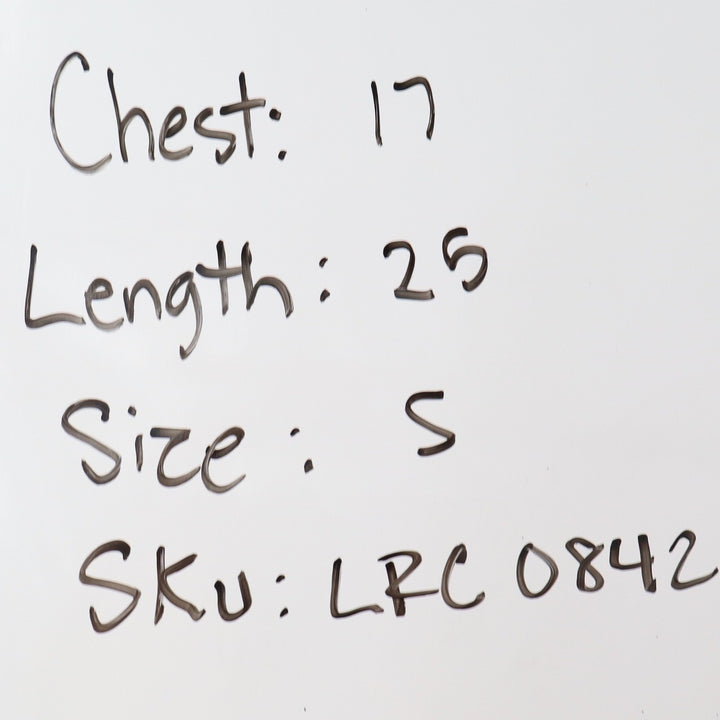 Chest: 17
Length: 25
Size: S
SKU: LRC 0842